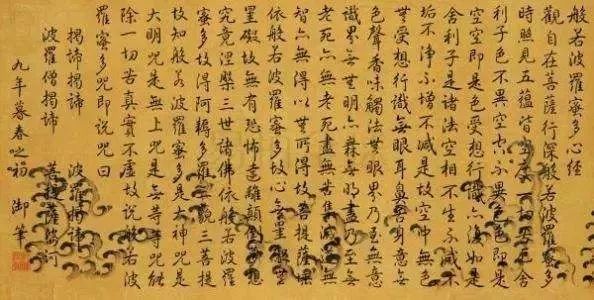 般若波羅蜜多心經
觀自在菩薩行深般若波羅蜜多
時照見五蘊皆空度一切苦厄舍
利子色不異空空不異色色即是
空空即是色受想行識亦復如是
舍利子是諸法空相不生不滅不
垢不淨不增不減是故空中無色
無受想行識無眼耳鼻舌身意無
色聲香味觸法無眼界乃至無意
識界無無明亦無無明盡乃至無
老死亦無老死盡無苦集滅道無
智亦無得以無所得故菩提薩埵
依般若波羅蜜多故心無罣礙無
罣礙故無有恐怖遠離顛倒夢想
究竟涅槃三世諸佛依般若波羅
蜜多故得阿耨多羅三藐三菩提
故知般若波羅蜜多是大神咒是
大明咒是無上咒是無等等咒能
除一切苦真實不虛故說般若波
羅蜜多咒即說咒曰
揭諦揭諦 波羅揭諦
波羅僧揭諦 菩提薩婆訶
九年暮春之初 御筆